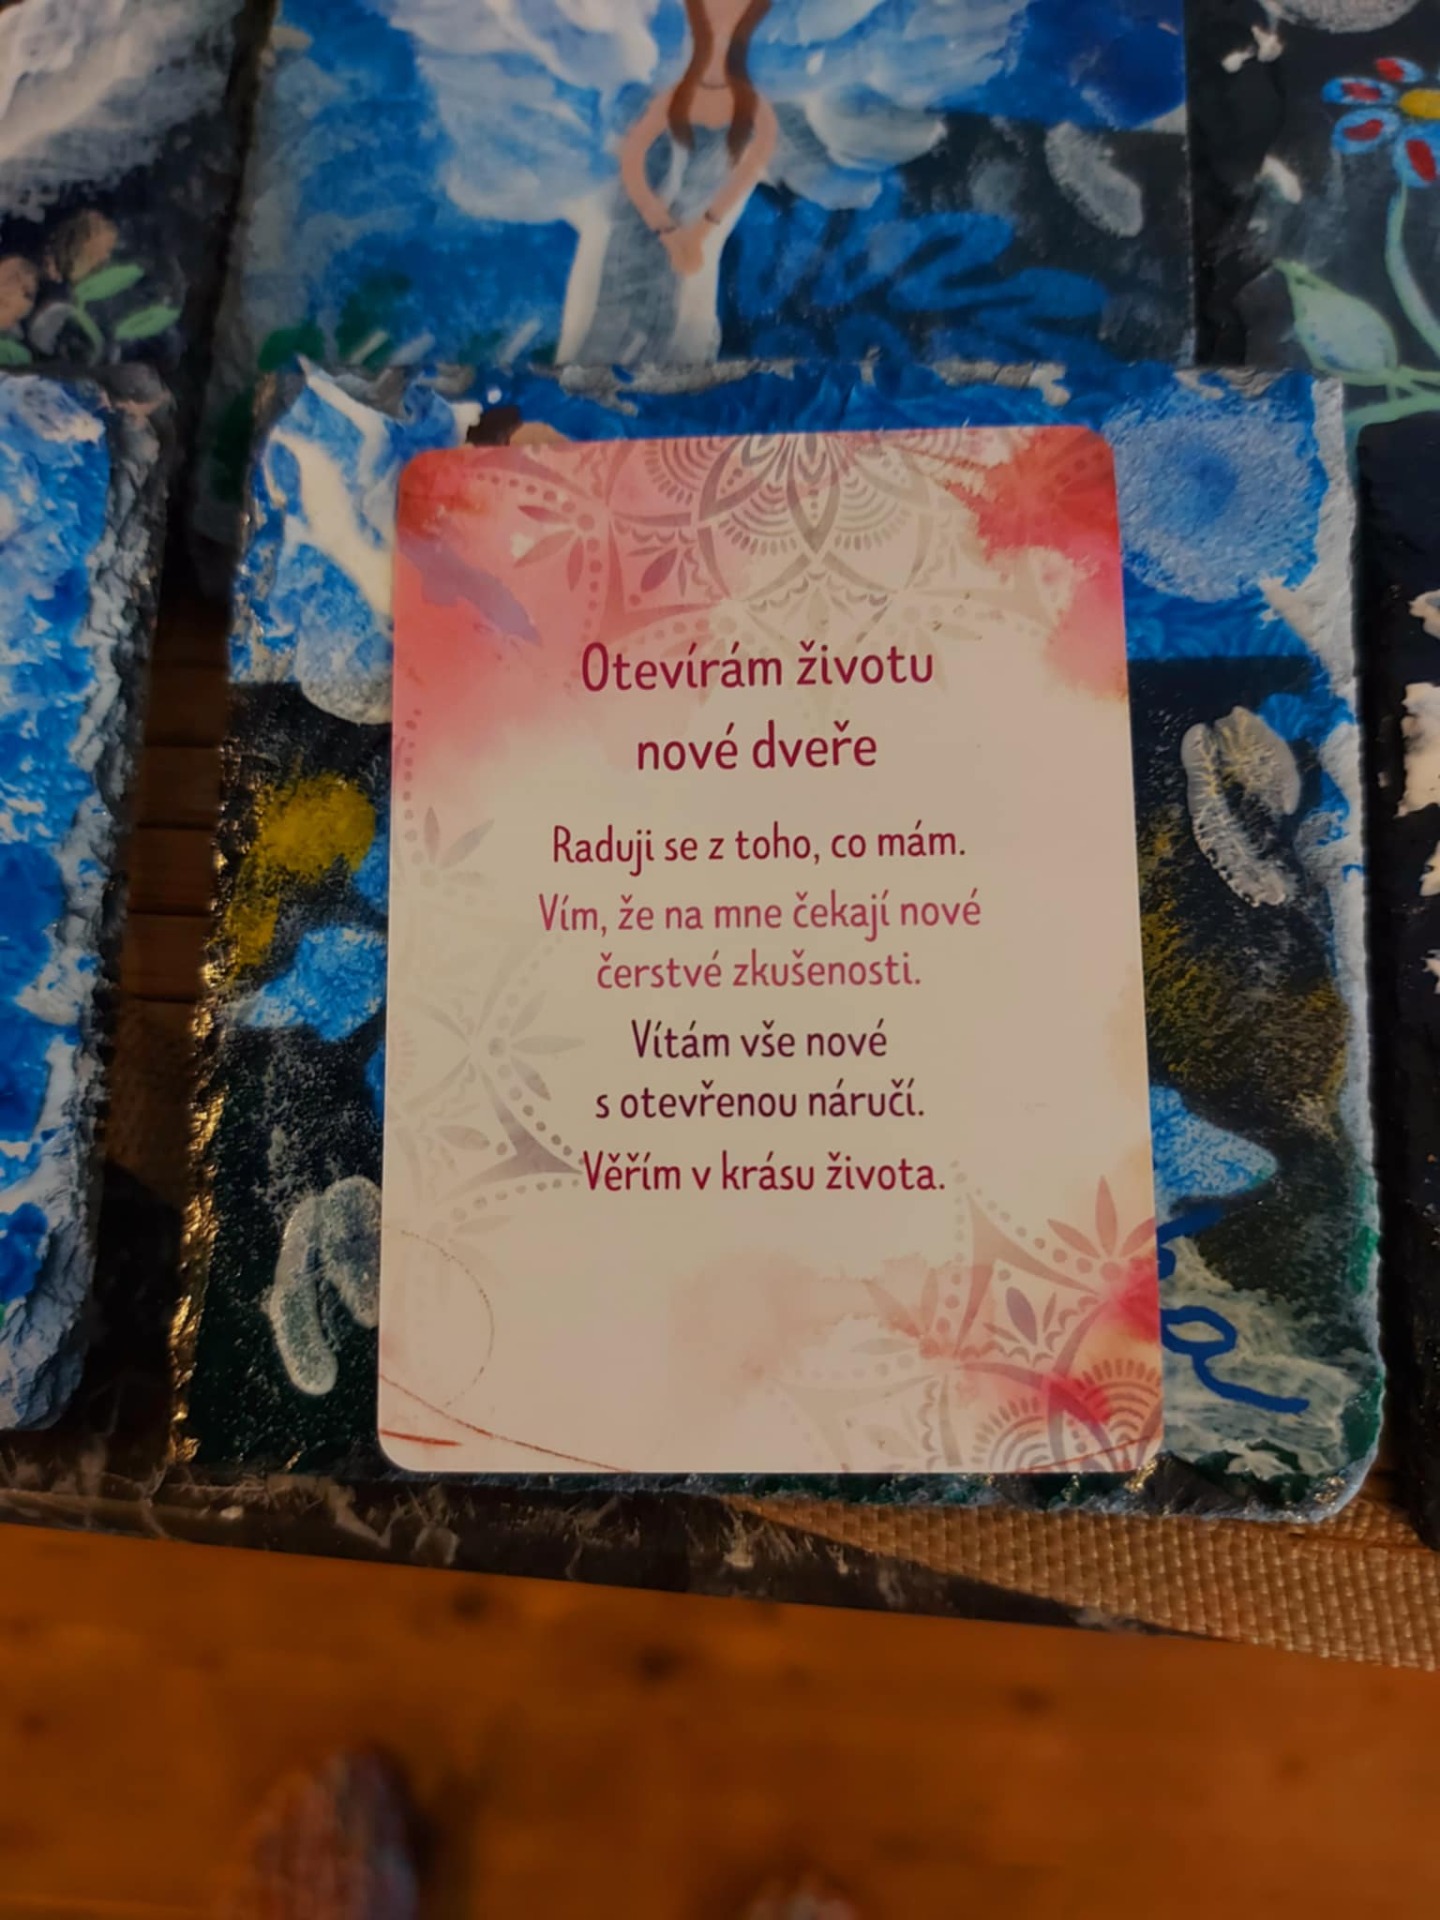 Otevírám životu
nové dveře
Raduji se z toho, co mám.
Vím, že na mne čekají nové
čerstvé zkušenosti.
Vítám vše nové
s otevřenou náručí.
Věřím v krásu života.